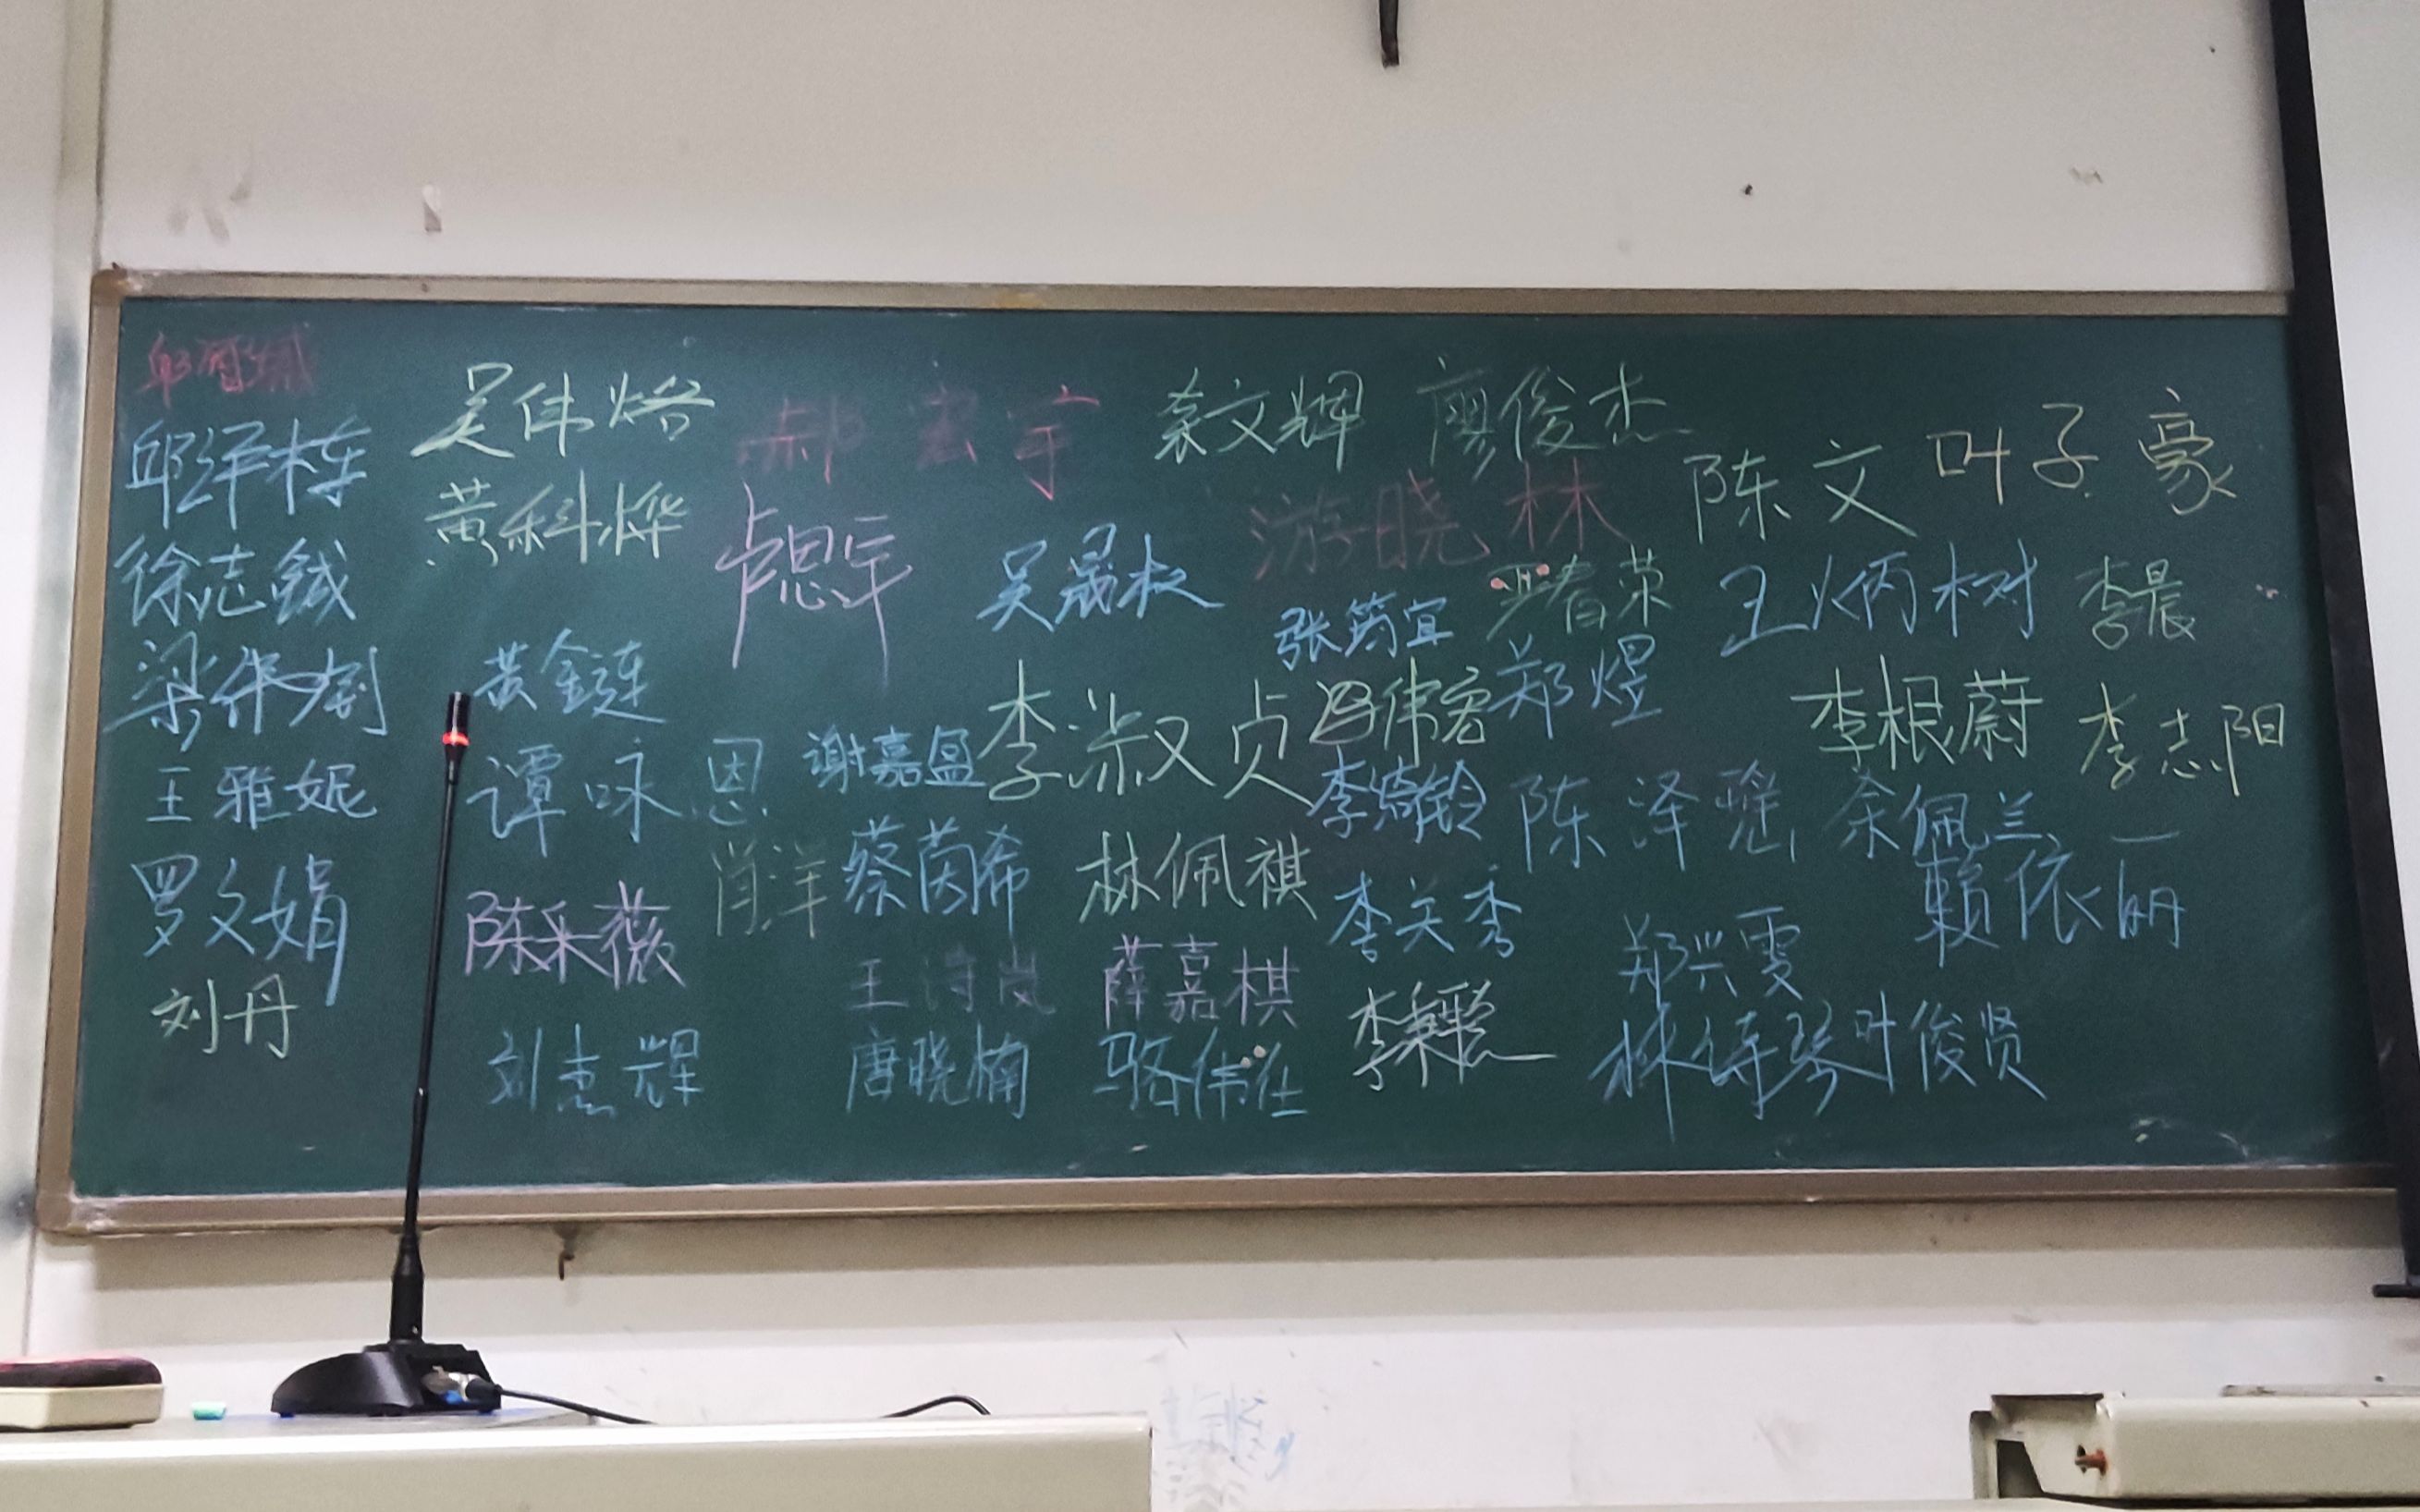 邱泽栋
徐志铖
王雅妮
罗文娟
刘丹
吴伟焓
黄科烨
黄金连
谭咏恩
陈采薇
刘惠辉
郝宏宇
卢思年
谢嘉盈
肖洋
蔡茵希
王诗岚
唐晓楠
余文辉
廖俊杰
吴晟权
游晓林
李淑贞
林佩祺
薛嘉棋
骆伟仕
张筠宜
严春荣
冯伟宏
郑煜
李关秀
陈文
叶子豪
王炳树
李晨
李根蔚
李志阳
余佩兰
赖依丽
郑兴雯
林绮琴
叶俊贤